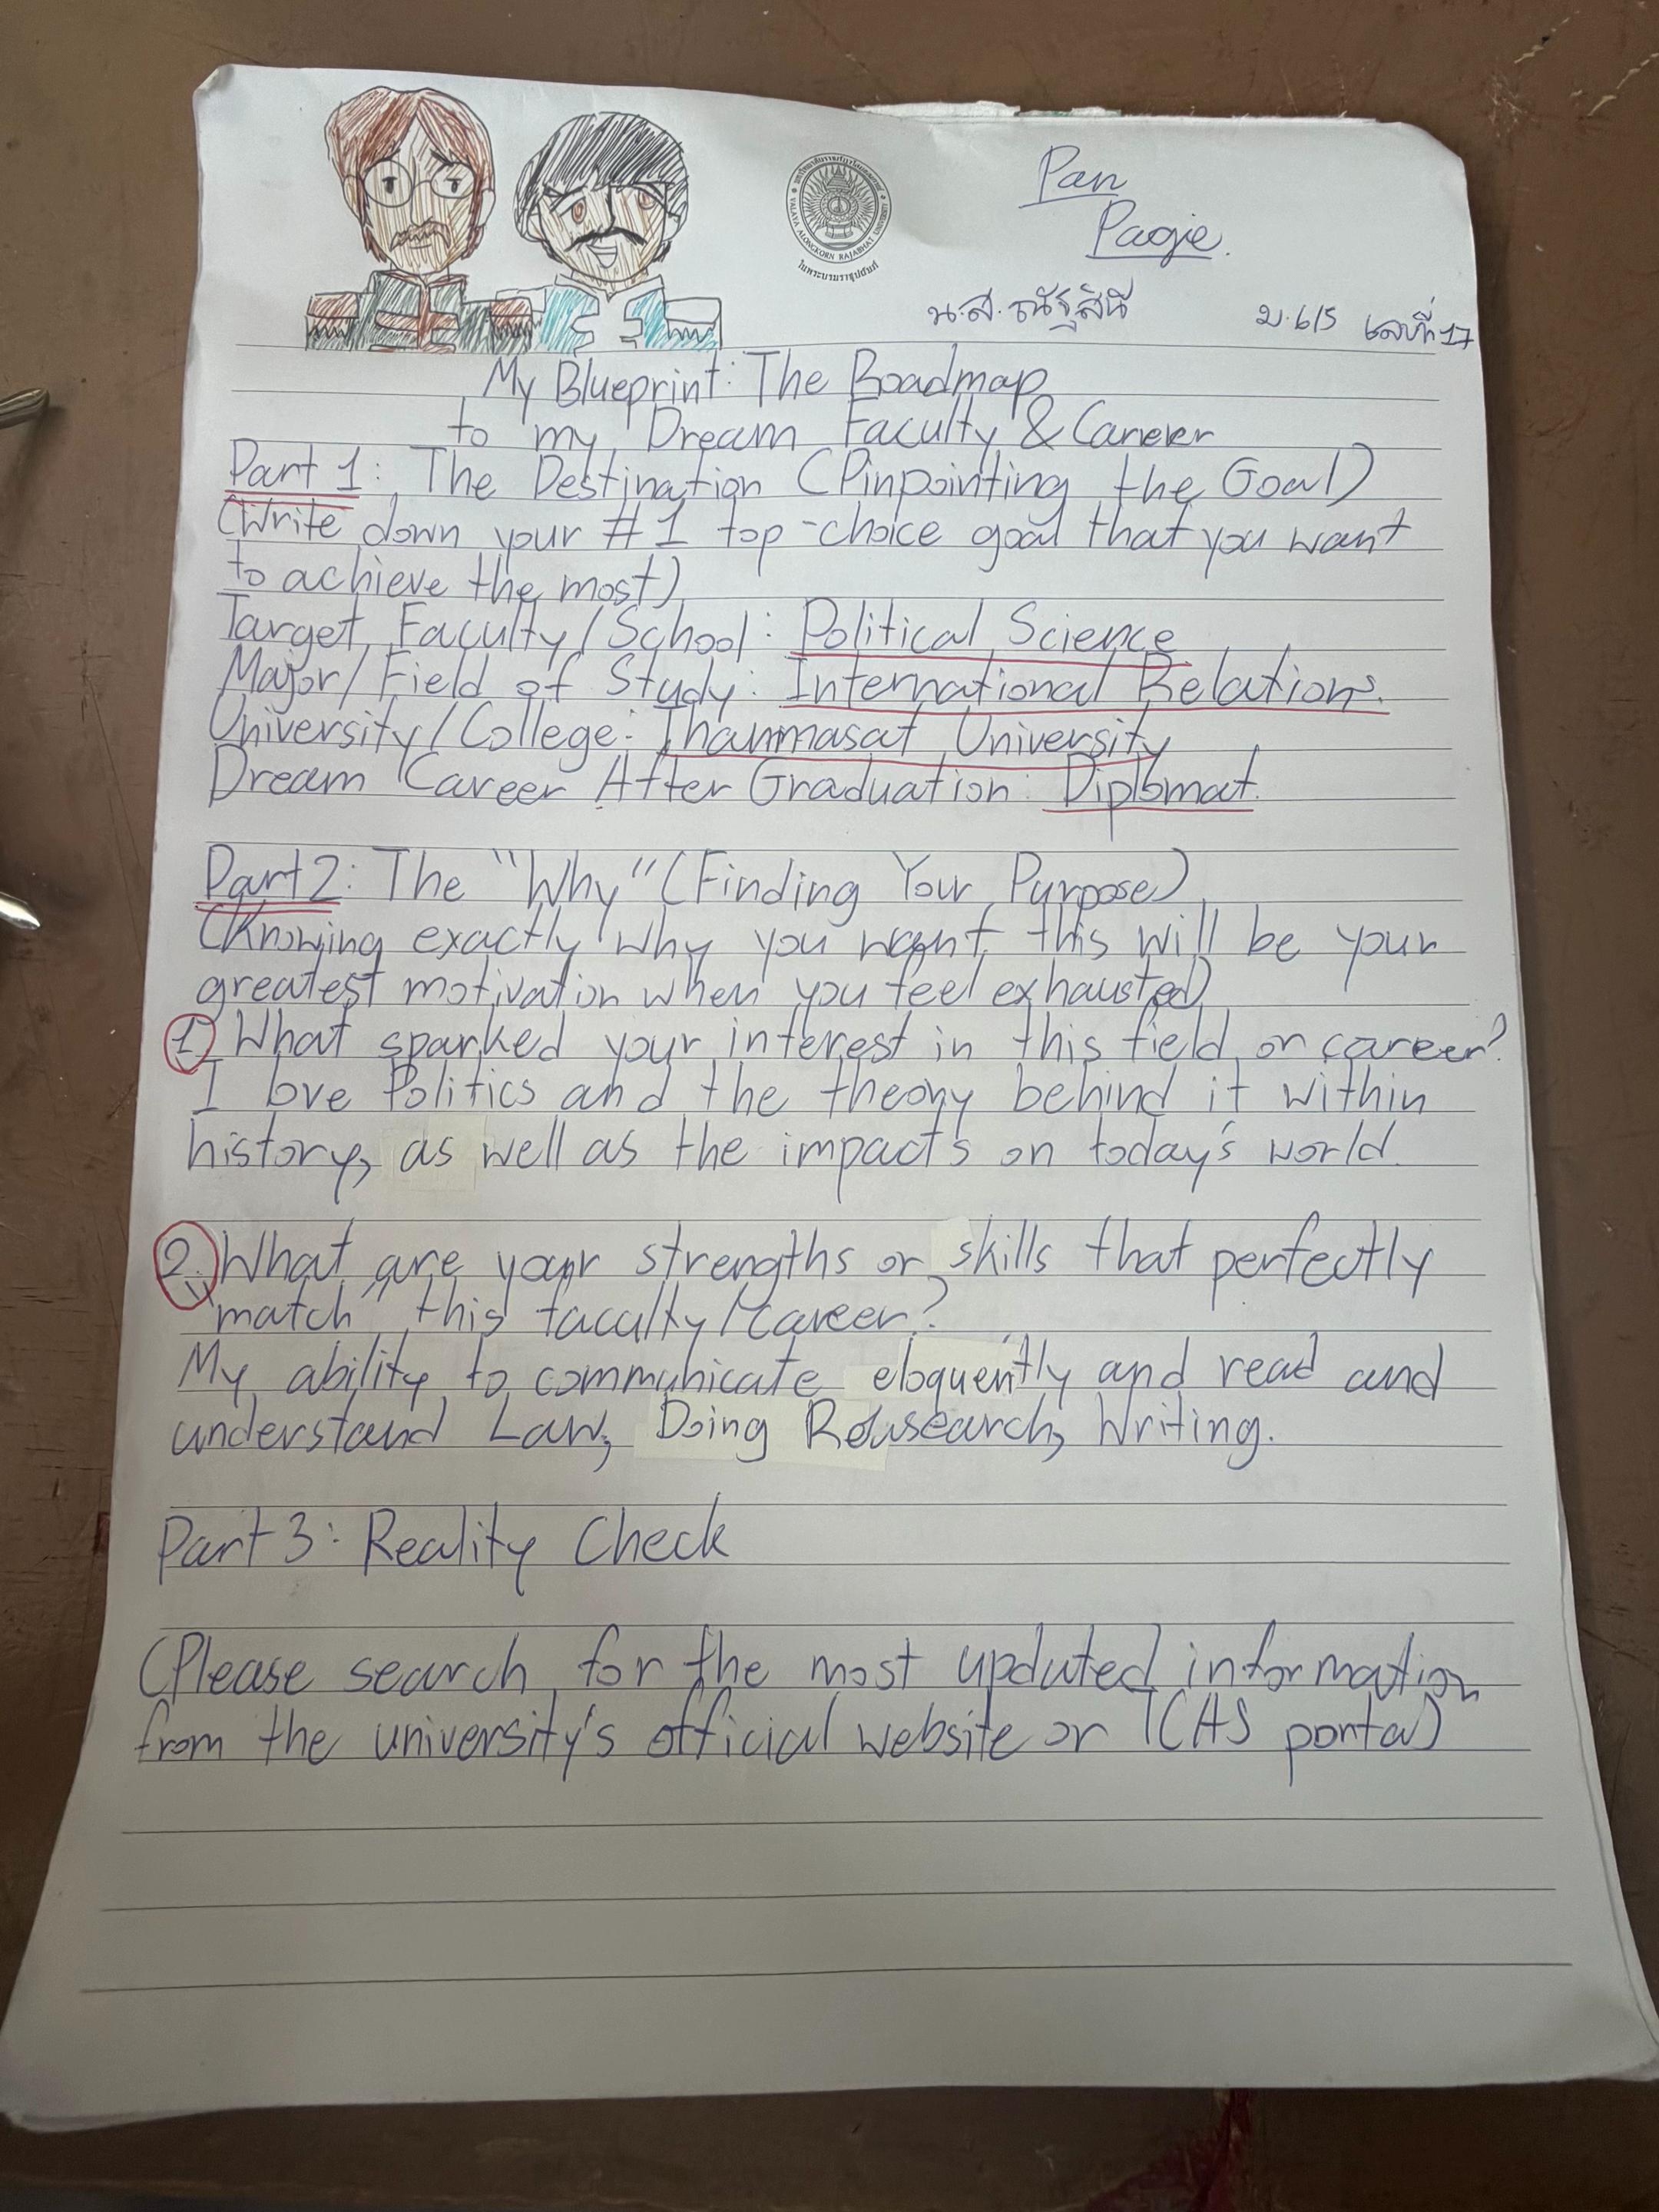 Pan
Pagie.
VALAYA ALONGKORN RAJABHAT UNIVERSITY
ในพระบรมราชูปถัมภ์
น.ส. ณัฐสินี ม.6/5 เลขที่ 17
My Blueprint: The Roadmap
to my Dream Faculty & Career
Part 1: The Destination (Pinpointing the Goal)
(Write down your #1 top-choice goal that you want
to achieve the most)
Target Faculty/School: Political Science
Major/Field of Study: International Relations.
University/College: Thammasat University
Dream Career After Graduation: Diplomat.
Part 2: The "Why" (Finding Your Purpose)
(Knowing exactly why you want this will be your
greatest motivation when you feel exhausted)
1) What sparked your interest in this field or career?
I love Politics and the theory behind it within
history, as well as the impacts on today's world.
2. What are your strengths or skills that perfectly
"match" this faculty/career?
My ability to communicate eloquently and read and
understand Law, Doing Research, Writing.
Part 3: Reality Check
(Please search for the most updated information
from the university's official website or TCAS portal)